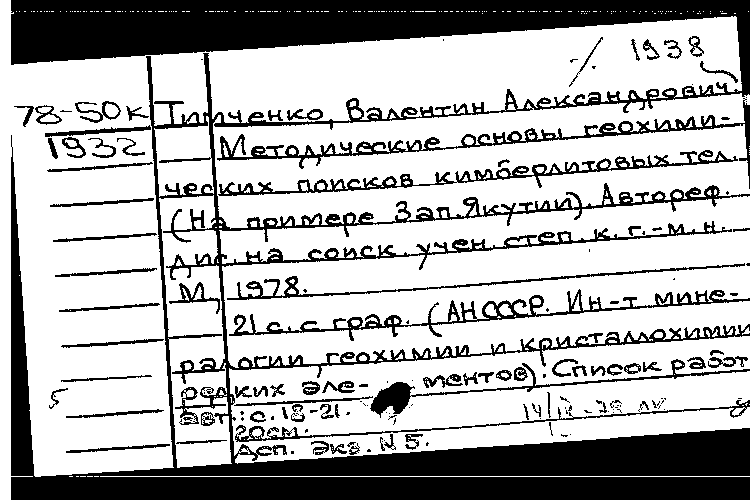 1938
78-50к Тимченко, Валентин Александрович.
1932 Методические основы геохими-
ческих поисков кимберлитовых тел.
(На примере Зап. Якутии). Автореф.
дис. на соиск. учен. степ. к. г.-м. н.
М, 1978.
21 с. с граф. (АН СССР. Ин-т мине-
ралогии, геохимии и кристаллохимии
редких эле- ментов). Список работ
5
авт.: с. 18-21.
20см.
Дсп. Экз. N 5.